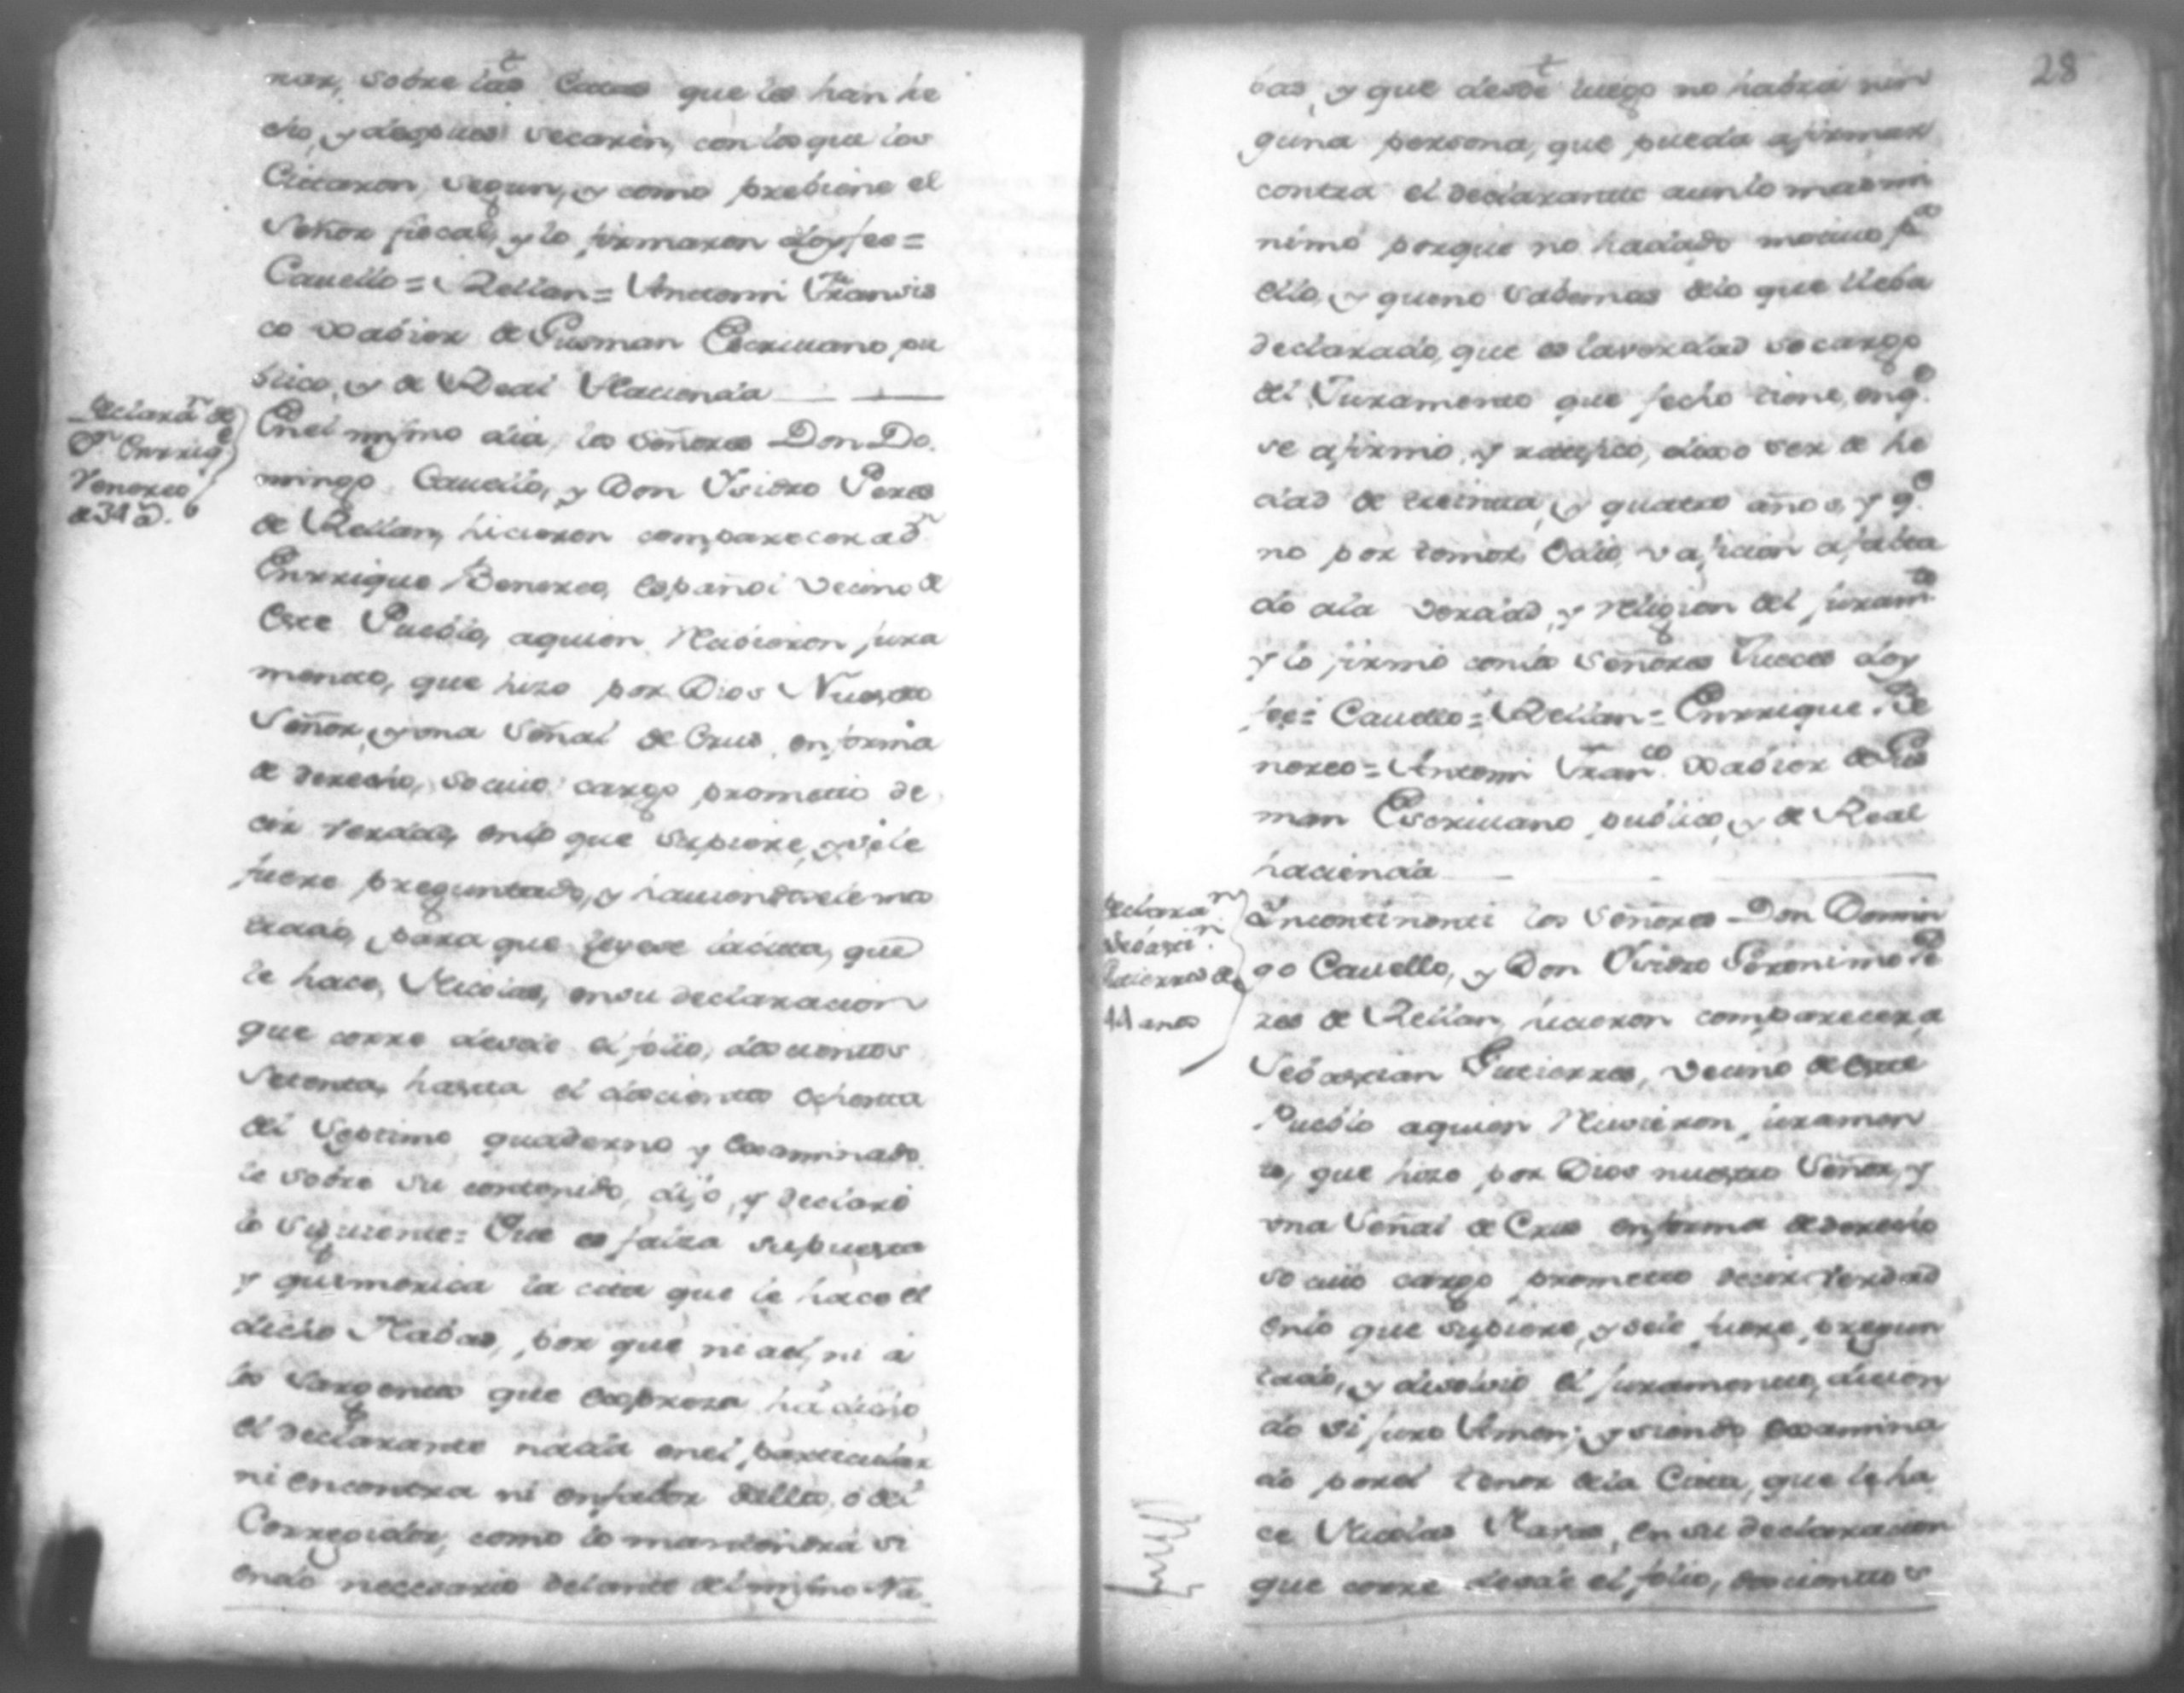 nar, sobre las Citas que les han he
cho, y despues secaren, con los que los
Citaron, segun, y como prebiene el
Señor fiscal, y lo firmaron doy fee =
Cauello = Rellan = Antemi Francis
co Xabier de Gusman Escriuano pu
blico, y de Real Hacienda
Declaraⁿ de
Dⁿ Enrriqᵉ
Venereo
de 34 aˢ.
Enel mismo dia, los Señores Don Do
mingo Cauello, y Don Ysidro Peres
de Rellan, hicieron comparecer a Dⁿ
Enrrique Benereo, Español Vecino de
este Pueblo, aquien Resibieron jura
mento, que hizo por Dios Nuestro
Señor, y una Señal de Crus, en forma
de derecho, so cuio cargo prometio de
cir verdad, enlo que supiere, y sele
fuere preguntado, y hauiendosele mos
trado, para que leyese la cita, que
le hace, Nicolas, en su declaracion
que corre desde el folio, doscientos
Setenta, hasta el doscientos ochenta
del Septimo quaderno y Examinado
le sobre su contenido, dijo, y declaró
lo siguiente = Que es falza supuesta
y quimerica la cita que le hace el
dicho Nabas, por que ni a el, ni á
los Sargentos que Expreza há dicho
el declarante nada enel particular
ni encontra ni enfabor dellos, ó del
Corregidor, como lo mantendrá si
endo necesario delante del mismo Na
28
bas, y que desde luego no habrá nin
guna persona, que pueda afirmar
contra el declarante aun lo mas mi
nimo porque no hadado motiuo pᵃ
ello, y queno sabemas delo que lleba
declarado, que es la verdad so cargo
del Juramento que fecho tiene, enqᵉ
se afirmó, y ratificó, dixo ser de he
dad de treinta, y quatro años, y qᵉ
no por temor, odio, vaficion a faltа
do ala Verdad, y Religion del juramᵗᵒ
y lo firmó conlos Señores Jueces doy
fee = Cauello = Rellan = Enrrique Be
nereo = Antemi Franᶜᵒ Xabier de Gus
man Escriuano publico, y de Real
hacienda
Declaraⁿ
Sebastiⁿ
Gutierres de
44 años
Yncontinenti los Señores Don Domin
go Cauello, y Don Ysidro Geronimo Pe
res de Rellan, hicieron comparecer a
Sebastian Gutierres, Vecino de este
Pueblo aquien Reciuieron, juramen
to, que hizo por Dios nuestro Señor, y
una Señal de Crus enforma dederecho
so cuio cargo prometio decir Verdad
enlo que supiere, y sele fuere pregun
tado, y absolvió el juramento, dicien
do si juro Amen; y siendo Examina
do porel tenor dela Cita, que le ha
ce Nicolas Navas, en su declaracion
que corre desde el folio, doscientos